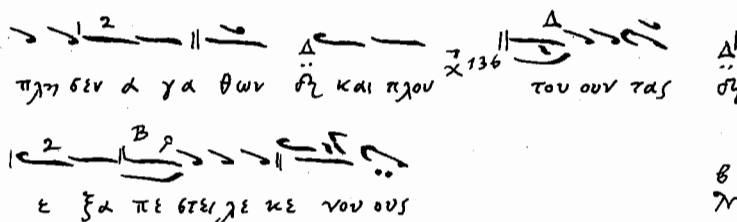 πλη σεν α γα θων και πλου χ136 του ουν τας
ε ξα πε στει λε κε νου ους